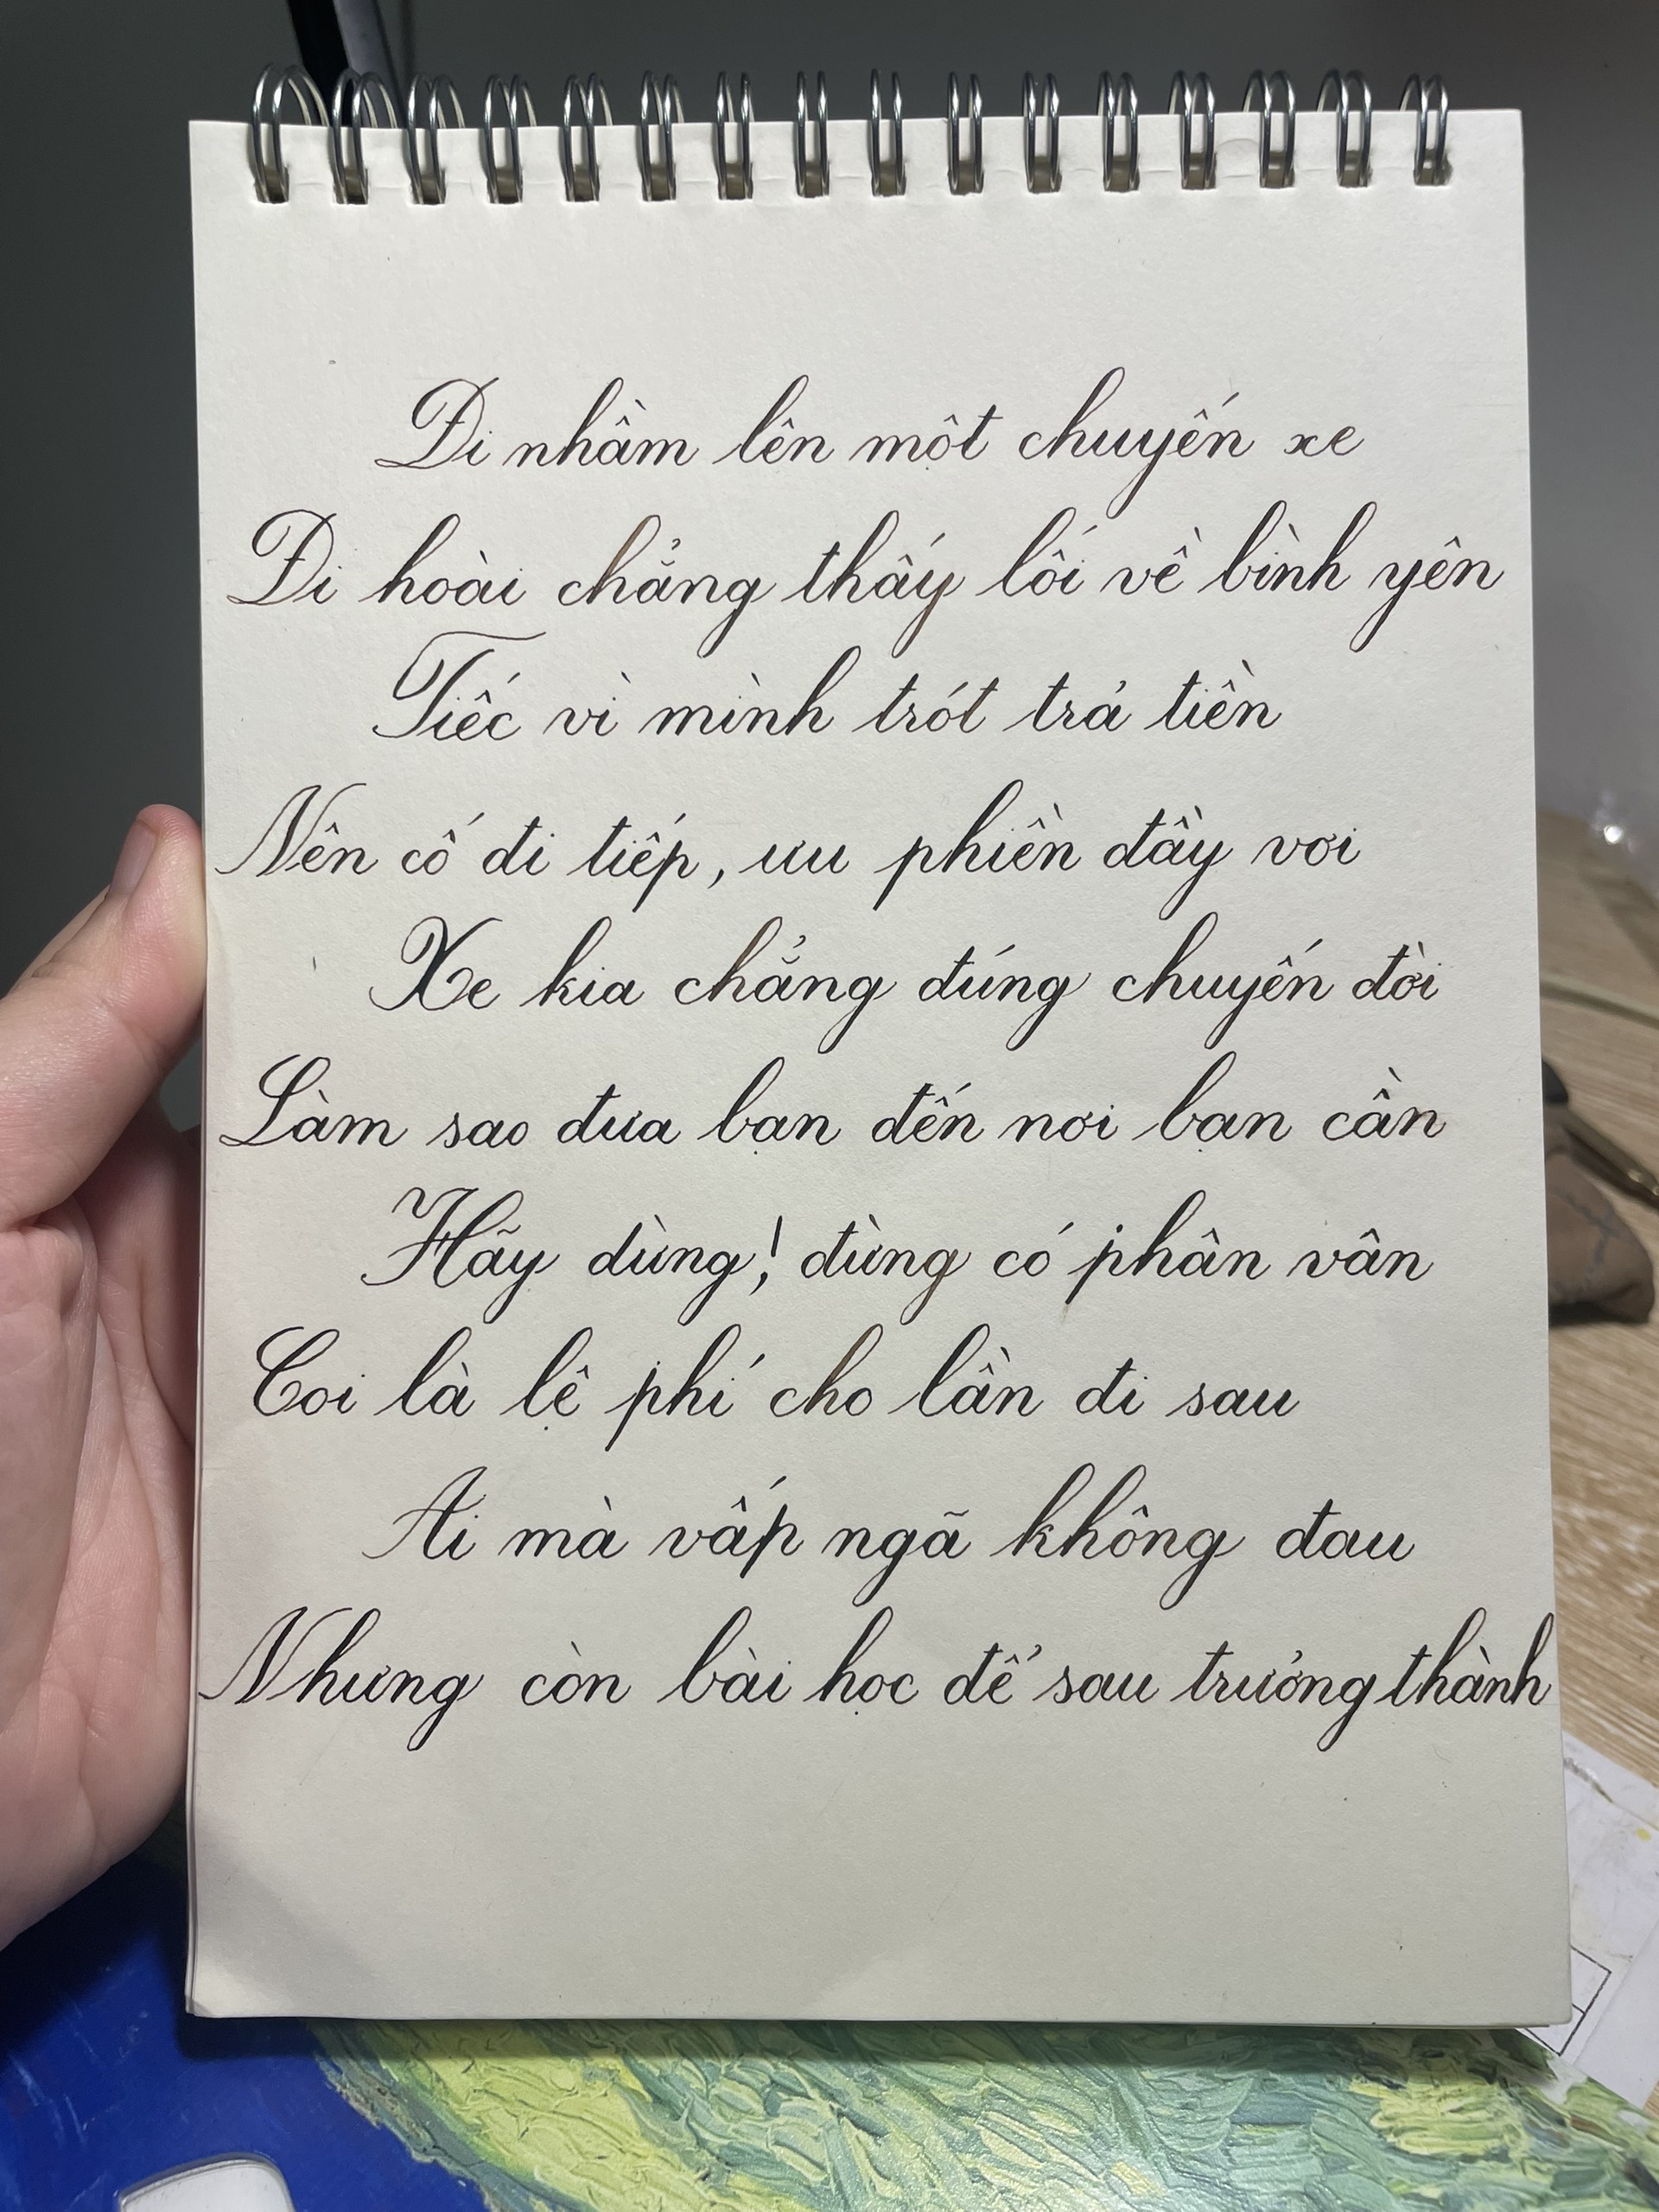 Đi nhầm lên một chuyến xe
Đi hoài chẳng thấy lối về bình yên
Tiếc vì mình trót trả tiền
Nên cố đi tiếp, ưu phiền đầy vơi
Xe kia chẳng đúng chuyến đời
Làm sao đưa bạn đến nơi bạn cần
Hãy dừng! đừng có phân vân
Coi là lệ phí cho lần đi sau
Ai mà vấp ngã không đau
Nhưng còn bài học để sau trưởng thành